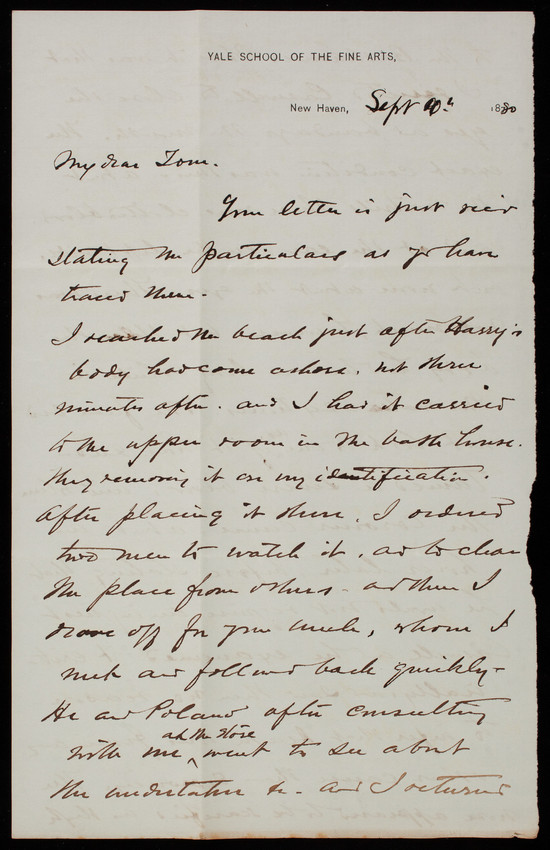 YALE SCHOOL OF THE FINE ARTS,
New Haven, Sept 1880
My dear Tom.
Your letter is just recd
stating the particulars as yo have
traced them-
I reached the beach just after Harry's
body had come ashore. not three
minutes after. and I had it carried
to the upper room in the bath house.
they removing it on my identification.
After placing it there, I ordered
two men to watch it, and to clear
the place from others - and then I
drove off for your uncle, whom I
met and followed back quickly-
He and Poland after consulting
at the store
with me went to see about
the undertaker &c - and I returned